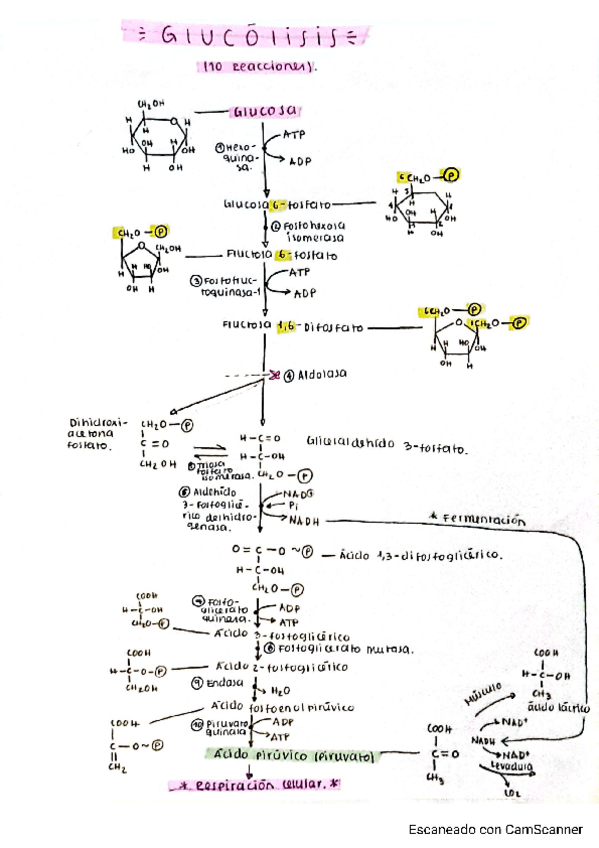 GLUCÓLISIS
(10 reacciones).
CH₂OH
GLUCOSA
H
O
H
H
OH
H
HO
OH
H
OH
① Hexo-
quina-
sa.
ATP
ADP
Glucosa 6-fosfato
6 CH₂O — P
② Fosfohexosa
isomerasa
CH₂O — P
CH₂OH
Fructosa 6-fosfato
③ Fosfofruc-
toquinasa-1
ATP
ADP
Fructosa 1,6-Difosfato
6 CH₂O — P
1 CH₂O — P
④ Aldolasa
Dihidroxi-
acetona
fosfato.
CH₂O — P
C = O
CH₂OH
H - C = O
H - C - OH
CH₂O — P
Gliceraldehído 3-fosfato.
⑤ Triosa
fosfato
isomerasa.
⑥ Aldehído
3-fosfoglicé-
rico deshidro-
genasa.
NAD⊕
Pi
NADH
* Fermentación
O = C - O ~ P
H - C - OH
CH₂O — P
Ácido 1,3-difosfoglicérico.
⑦ Fosfo-
glicerato
quinasa.
ADP
ATP
COOH
H - C - OH
CH₂O - P
Ácido 3-fosfoglicérico
⑧ Fosfoglicerato mutasa.
COOH
H - C - O - P
CH₂OH
Ácido 2-fosfoglicérico
⑨ Enolasa
H₂O
Ácido fosfoenol pirúvico
COOH
C - O ~ P
CH₂
⑩ Piruvato
quinasa
ADP
ATP
Ácido pirúvico (piruvato)
COOH
C = O
CH₃
Músculo
COOH
H - C - OH
CH₃
ácido láctico
NAD⁺
NADH
NAD⁺
Levadura
CO₂
* Respiración celular. *
Escaneado con CamScanner